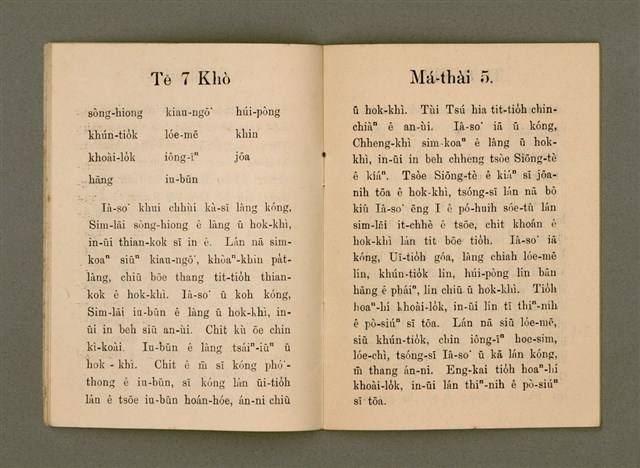 Tē 7 Khò
sòng-hiong kiau-ngō͘ húi-pòng
khún-tio̍k lóe-mē khin
khoài-lo̍k iông-īⁿ jōa
hāng iu-būn
Iâ-so͘ khui chhùi kà-sī lâng kóng,
Sim-lāi sòng-hiong ê lâng ū hok-khì,
in-ūi thian-kok sī in ê. Lán nā sim-
koaⁿ siūⁿ kiau-ngō͘, khòaⁿ-khin pa̍t-
lâng, chiū bōe thang tit-tio̍h thian-
kok ê hok-khì. Iâ-so͘ ū koh kóng,
Sim-lāi iu-būn ê lâng ū hok-khì, in-
ūi in beh siū an-ùi. Chit kù ōe chin
kì-koài. Iu-būn ê lâng tsáiⁿ-iūⁿ ū
hok-khì. Chit ê m̄ sī kóng phó͘-
thong ê iu-būn, sī kóng lán ūi-tio̍h
lán ê tsōe iu-būn hoán-hóe, án-ni chiū
Má-thài 5.
ū hok-khì. Tùi Tsú hia tit-tio̍h chin-
chiàⁿ ê an-ùi. Iâ-so͘ iā ū kóng,
Chheng-khì sim-koaⁿ ê lâng ū hok-
khì, in-ūi in beh chheng tsòe Siōng-tè
ê kiáⁿ. Tsòe Siōng-tè ê kiáⁿ sī jōa-
nih tōa ê hok-khì, tsóng-sī lán nā bô
kiû Iâ-so͘ ēng I ê pó-huih sóe-tû lán
sim-lāi it-chhè ê tsōe, chit khoán ê
hok-khì lán tit bōe tio̍h. Iâ-so͘ iā
kóng, Uī-tio̍h góa, lâng chiah lóe-mē
lín, khún-tio̍k lín, húi-pòng lín bān
hāng ê pháiⁿ, lín chiū ū hok-khì. Tio̍h
hoaⁿ-hí khoài-lo̍k, in-ūi lín tī thiⁿ-nih
ê pò-siúⁿ sī tōa. Lán nā siū lóe-mē,
siū khún-tio̍k, chin iông-īⁿ hoe-sim,
lóe-chì, tsóng-sī Iâ-so͘ ū kā lán kóng,
m̄ thang án-ni. Eng-kai tio̍h hoaⁿ-hí
khoài-lo̍k, in-ūi lán thiⁿ-nih ê pò-siúⁿ
sī tōa.